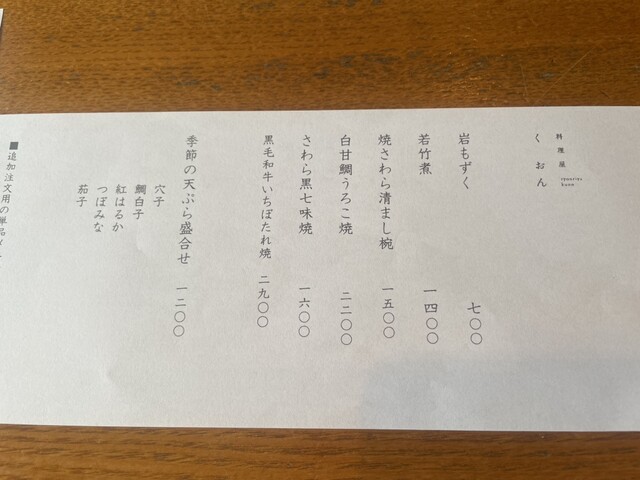 料理屋
くおん
岩もずく 七〇〇
若竹煮 一四〇〇
焼さわら清まし椀 一五〇〇
白甘鯛うろこ焼 二二〇〇
さわら黒七味焼 一六〇〇
黒毛和牛いちぼたれ焼 二九〇〇
季節の天ぷら盛合せ 一二〇〇
穴子
鯛白子
紅はるか
つぼみな
茄子
■追加注文用の単品メ